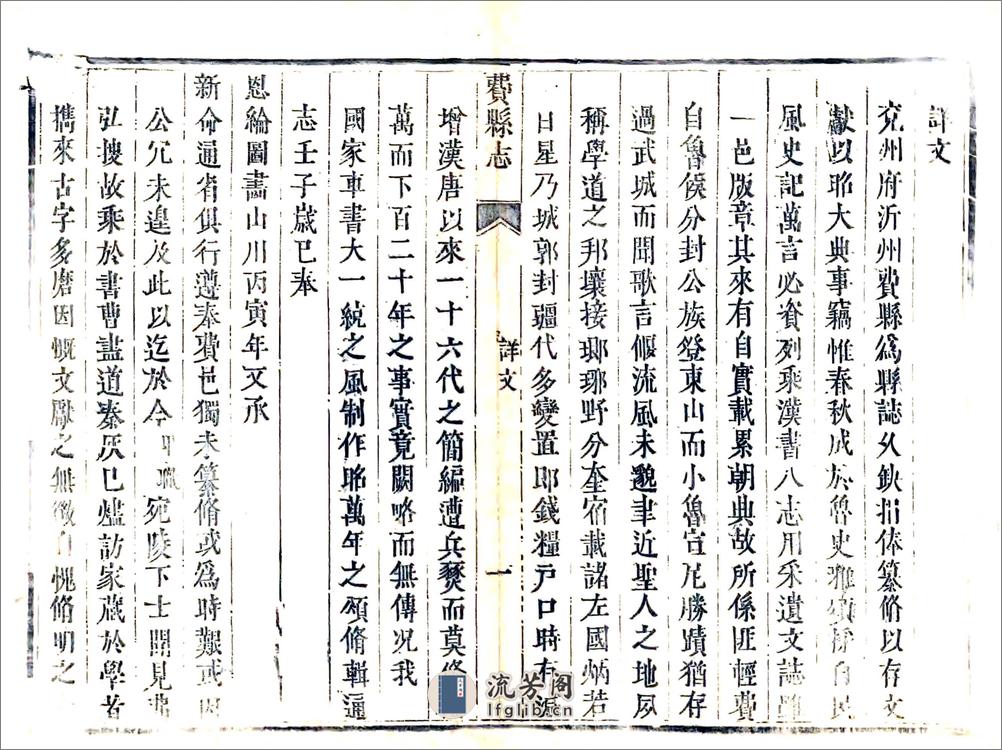 詳文
兗州府沂州費縣爲縣誌久缺捐俸纂脩以存文
獻以昭大典事竊惟春秋成於魯史雅頌採自民
風史記萬言必資列乘漢書八志用釆遺文誌雖
一邑版章其來有自實載累朝典故所係匪輕費
自魯侯分封公族登東山而小魯宣尼勝蹟猶存
過武城而聞歌言偃流風未邈聿近聖人之地夙
稱學道之邦壤接瑯琊野分奎宿載諸左國炳若
日星乃城郭封疆代多變置即錢糧戸口時有
費縣志
詳文
一
增漢唐以來一十六代之簡編遭兵燹而莫脩
萬而下百二十年之事實竟闕略而無傳况我
國家車書大一統之風制作昭萬年之頌脩輯通
志壬子歲已奉
恩綸圖畫山川丙寅年又承
新命通省俱行遵奉費邑獨未纂脩或爲時艱或因
公冗未遑及此以迄於今 宛陵下士聞見
弘搜故乘於書曹盡道秦灰已燼訪家藏於學首
携來古字多磨因慨文獻之無徵自愧脩明之
流芳阁
lfglib.com